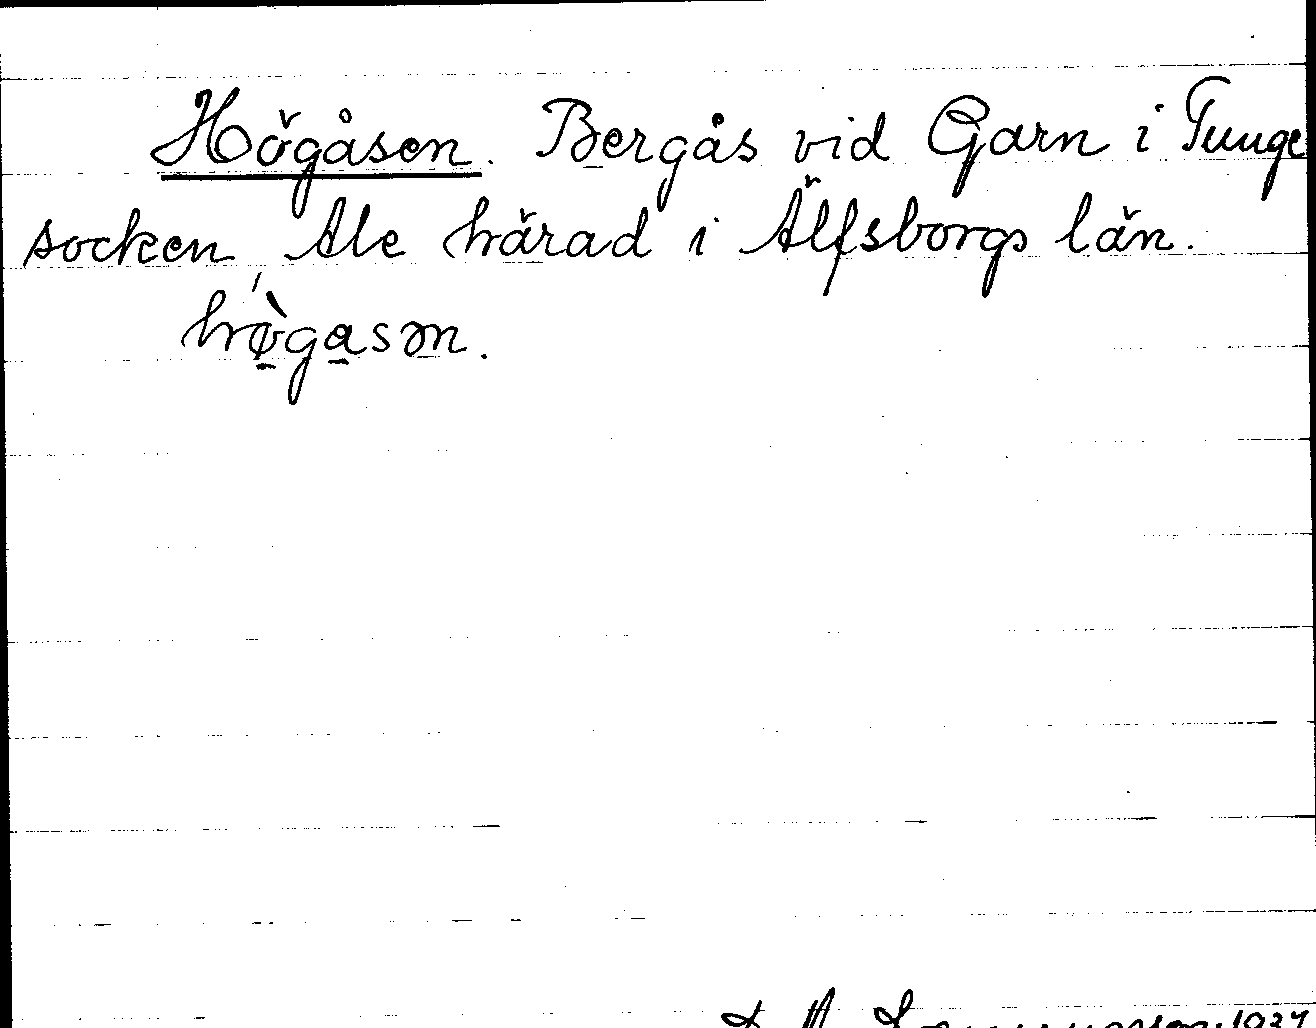 Högåsen. Bergås vid Garn i Tunge
socken, Ale härad i Älfsborgs län.
hø̱̀ga̱sən.
1937